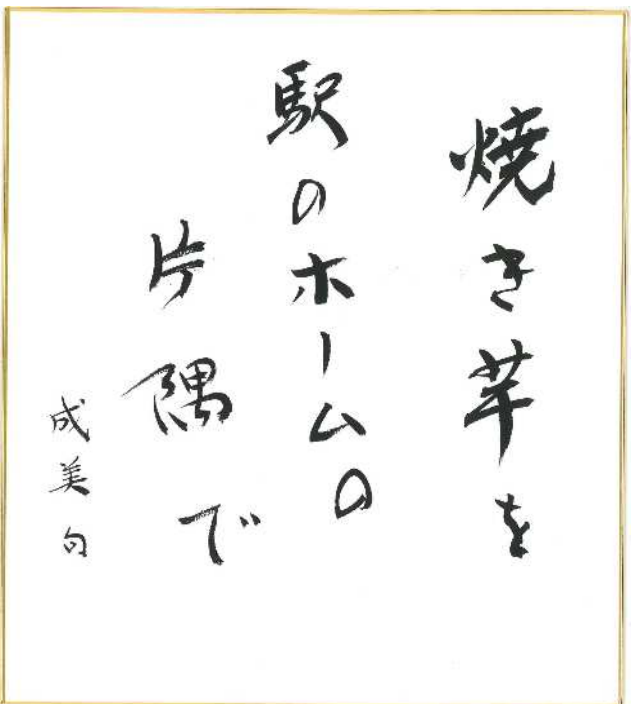 焼き芋を
駅のホームの
片隅で
成美句